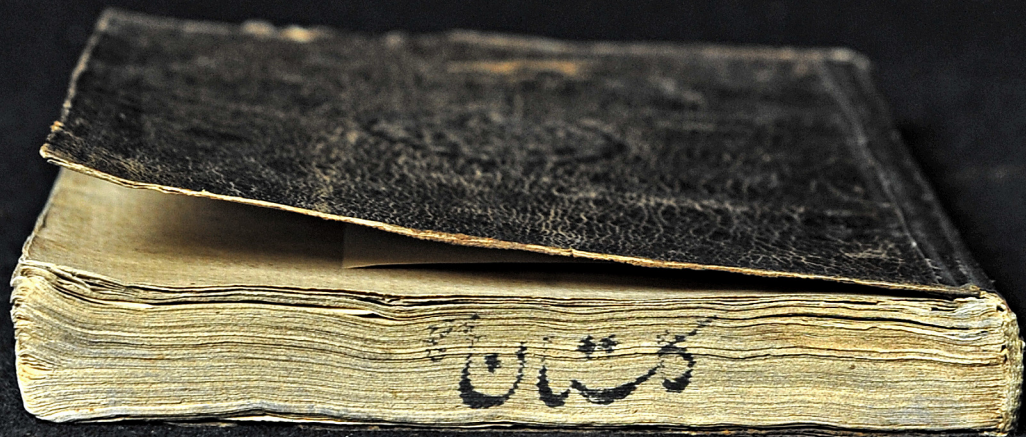 گلستان